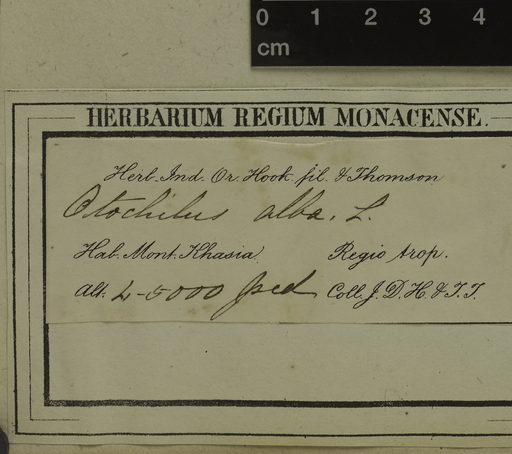 0 1 2 3 4
cm
HERBARIUM REGIUM MONACENSE.
Herb. Ind. Or. Hook. fil. & Thomson
Otochilus alba. L.
Hab. Mont. Khasia. Regio trop.
Alt. 4-5000 ped Coll. J. D. H. & T. T.